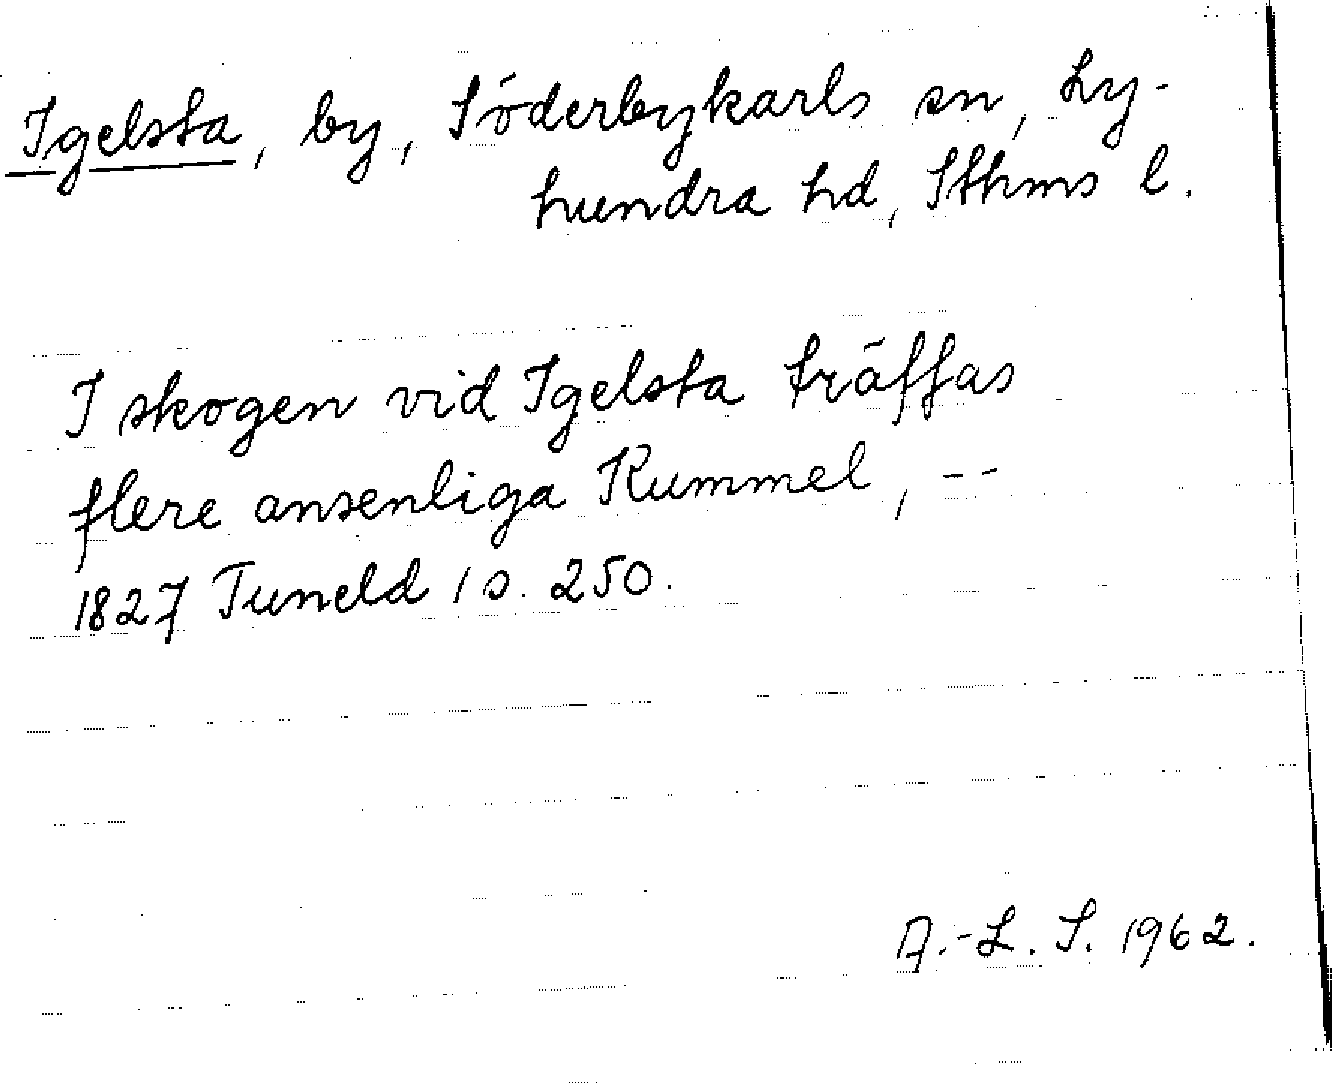 Igelsta, by, Söderbykarls sn, Ly-
hundra hd, Sthms l.
I skogen vid Igelsta träffas
flere ansenliga Kummel, --
1827 Tuneld 1 s. 250.
A.-L. S. 1962.